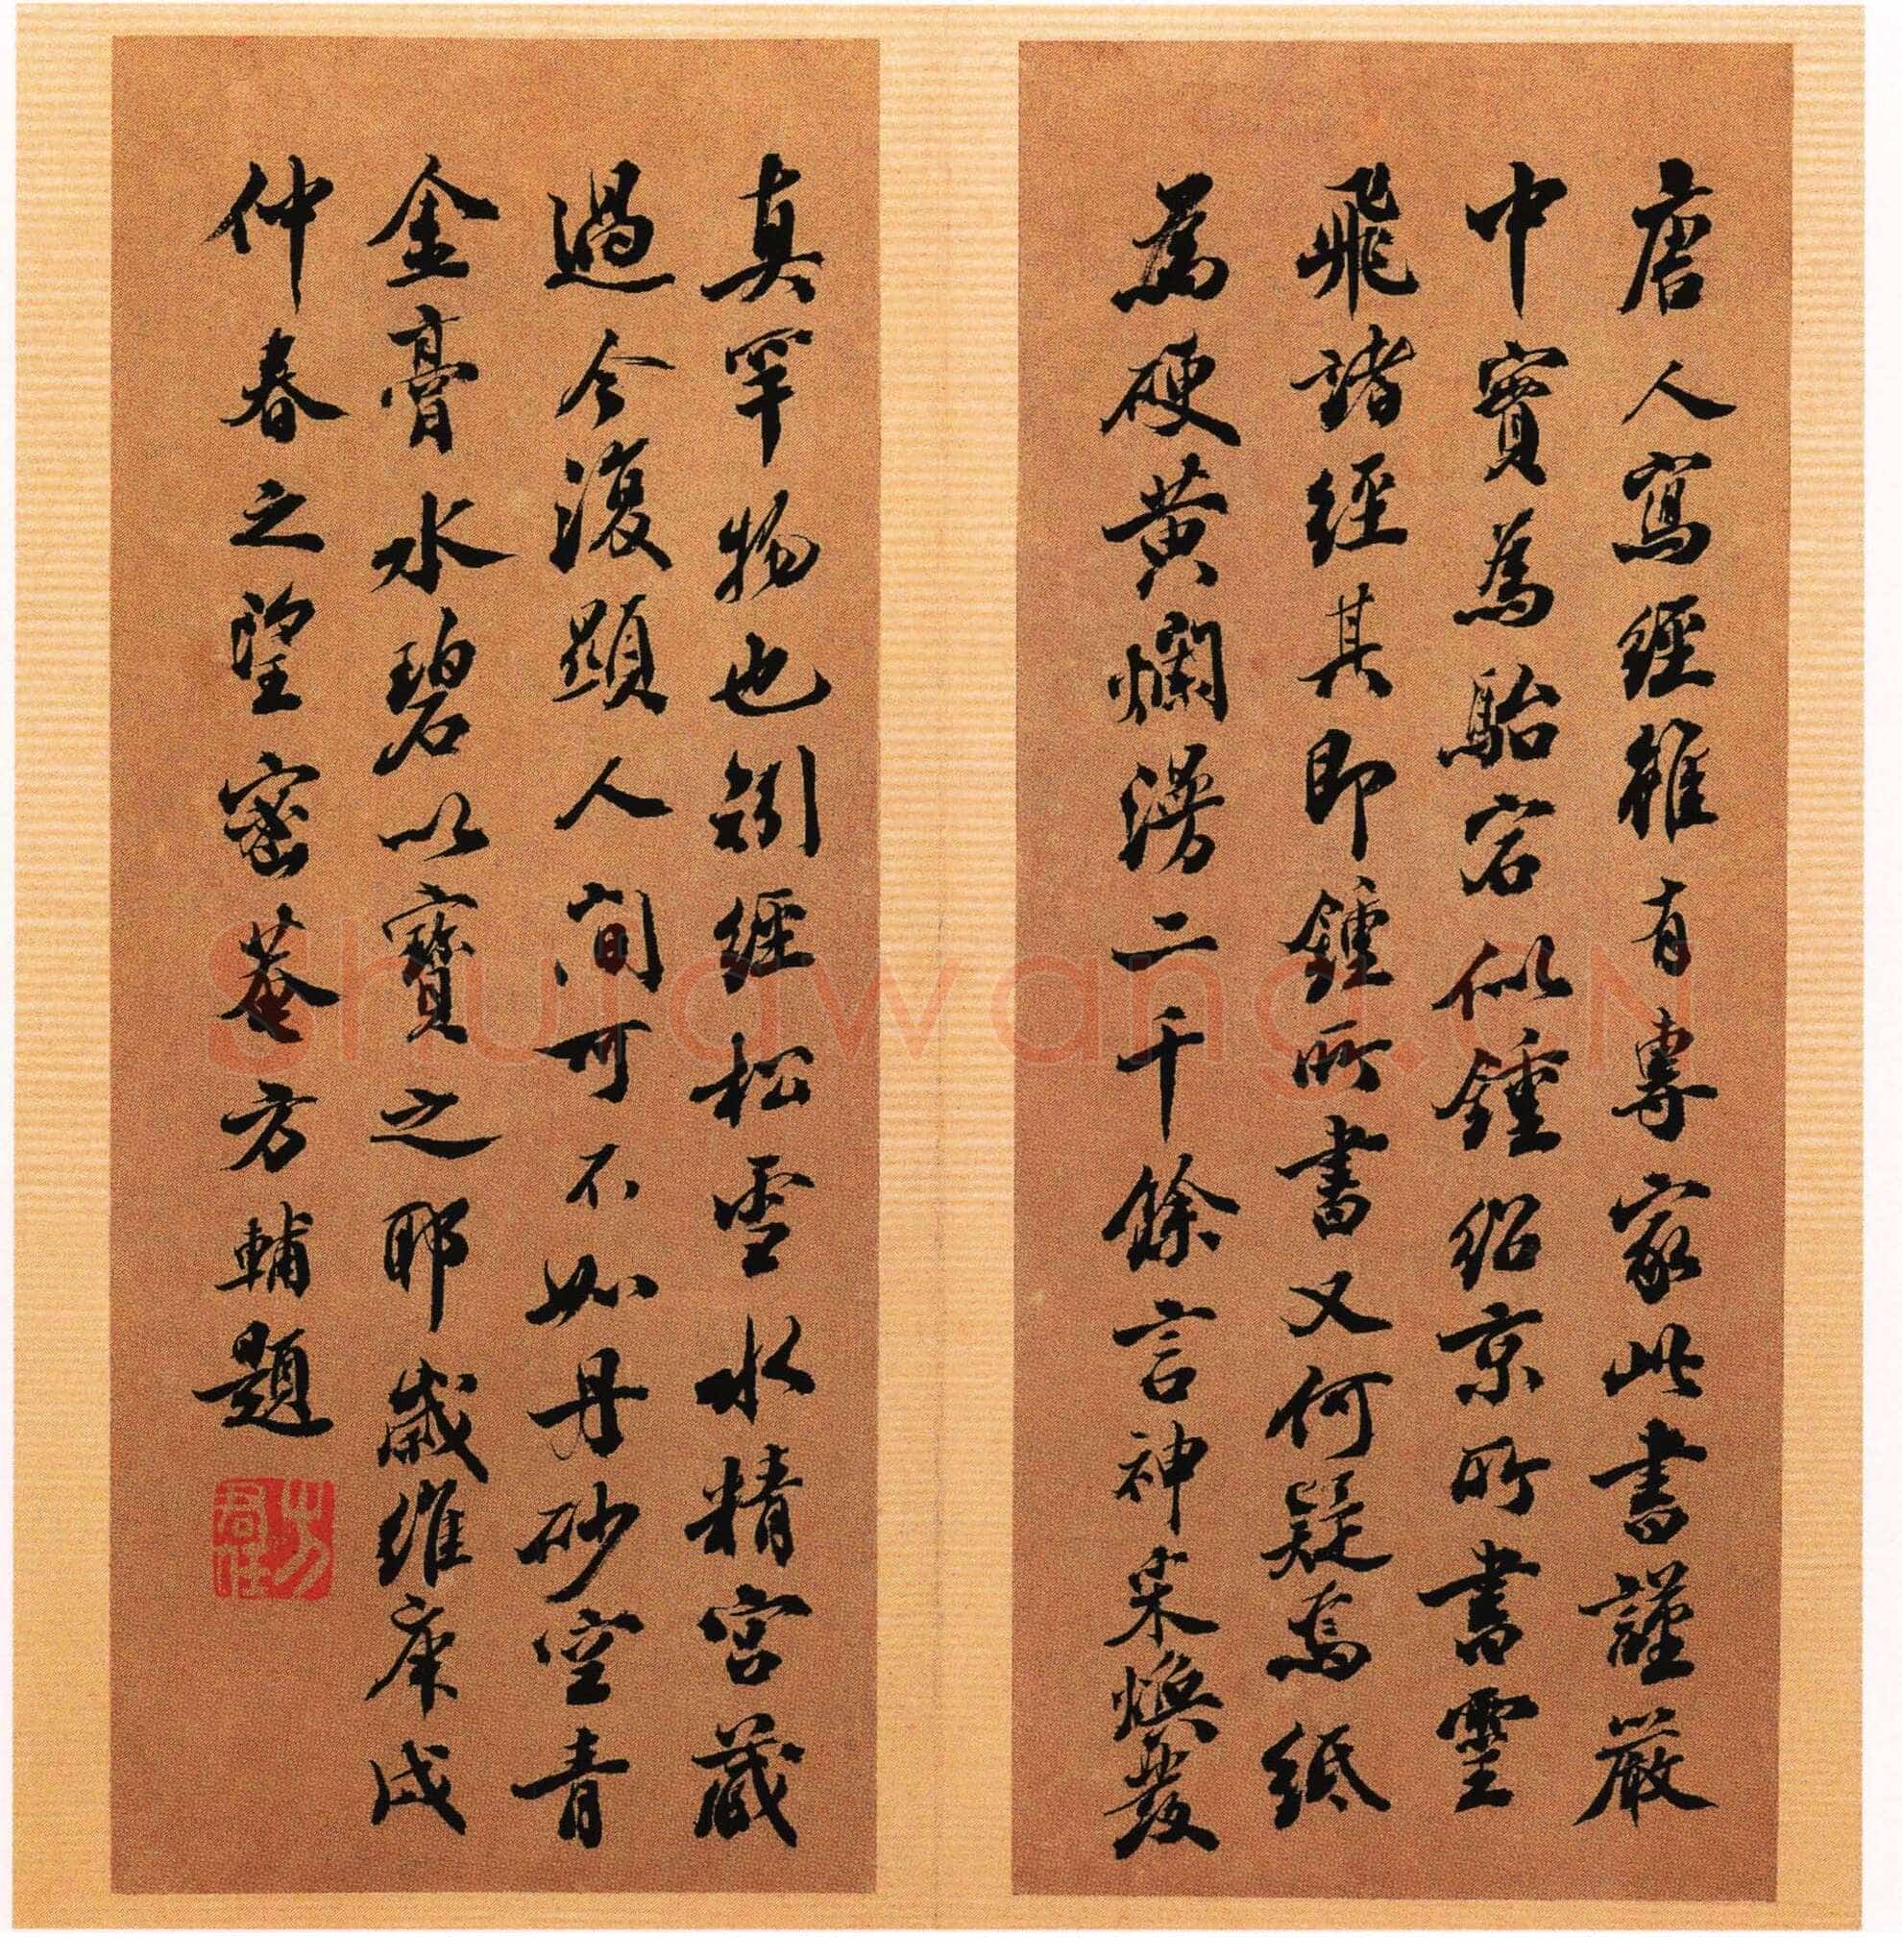 唐人寫經雖有專家此書謹嚴
中實為駘宕似鍾紹京所書靈
飛諸經其即鍾所書又何疑焉紙
為硬黃爛漫二千餘言神采煥發
真罕物也剙經松雪水精宮藏
過今復顯人間可不如丹砂空青
金膏水碧以寶之耶歲維庚戌
仲春之望密菴方輔題
ShufawangCN